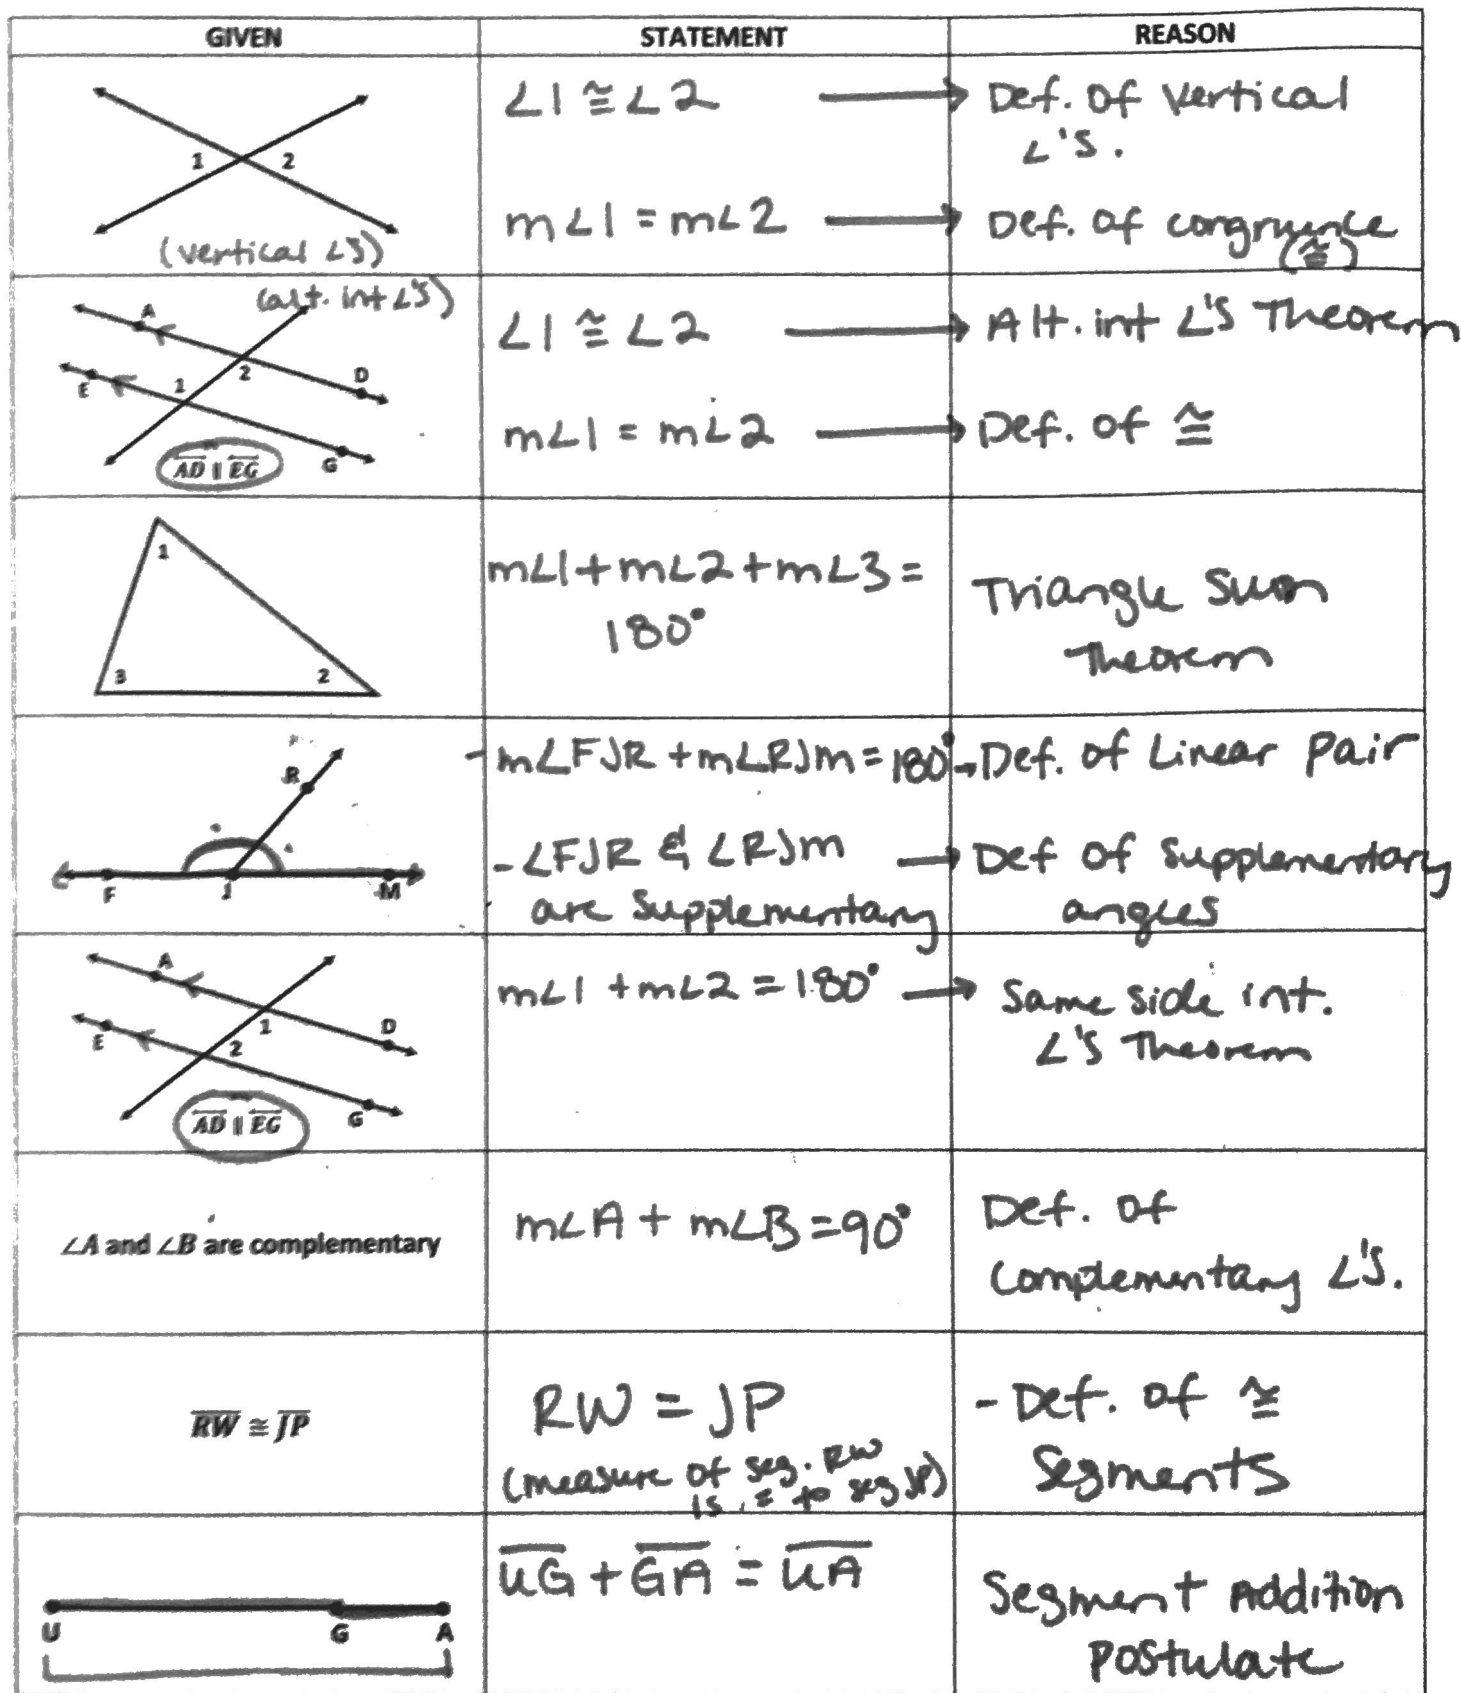 GIVEN
STATEMENT
REASON
1
2
(vertical ∠'s)
∠1 ≅ ∠2
Def. of vertical
∠'s.
m∠1 = m∠2
Def. of congruence
(≅)
(alt. int ∠'s)
A
D
1
2
E
G
AD ∥ EG
∠1 ≅ ∠2
Alt. int ∠'s Theorem
m∠1 = m∠2
Def. of ≅
1
3
2
m∠1+m∠2+m∠3 =
180°
Triangle Sum
Theorem
R
F
J
M
-m∠FJR + m∠RJM = 180°
Def. of Linear Pair
-∠FJR & ∠RJM
are supplementary
Def of supplementary
angles
A
D
1
2
E
G
AD ∥ EG
m∠1 + m∠2 = 180°
Same side int.
∠'s Theorem
∠A and ∠B are complementary
m∠A + m∠B = 90°
Def. of
complementary ∠'s.
RW ≅ JP
RW = JP
(measure of seg. RW
is = to seg JP)
- Def. of ≅
Segments
U
G
A
UG + GA = UA
Segment Addition
Postulate